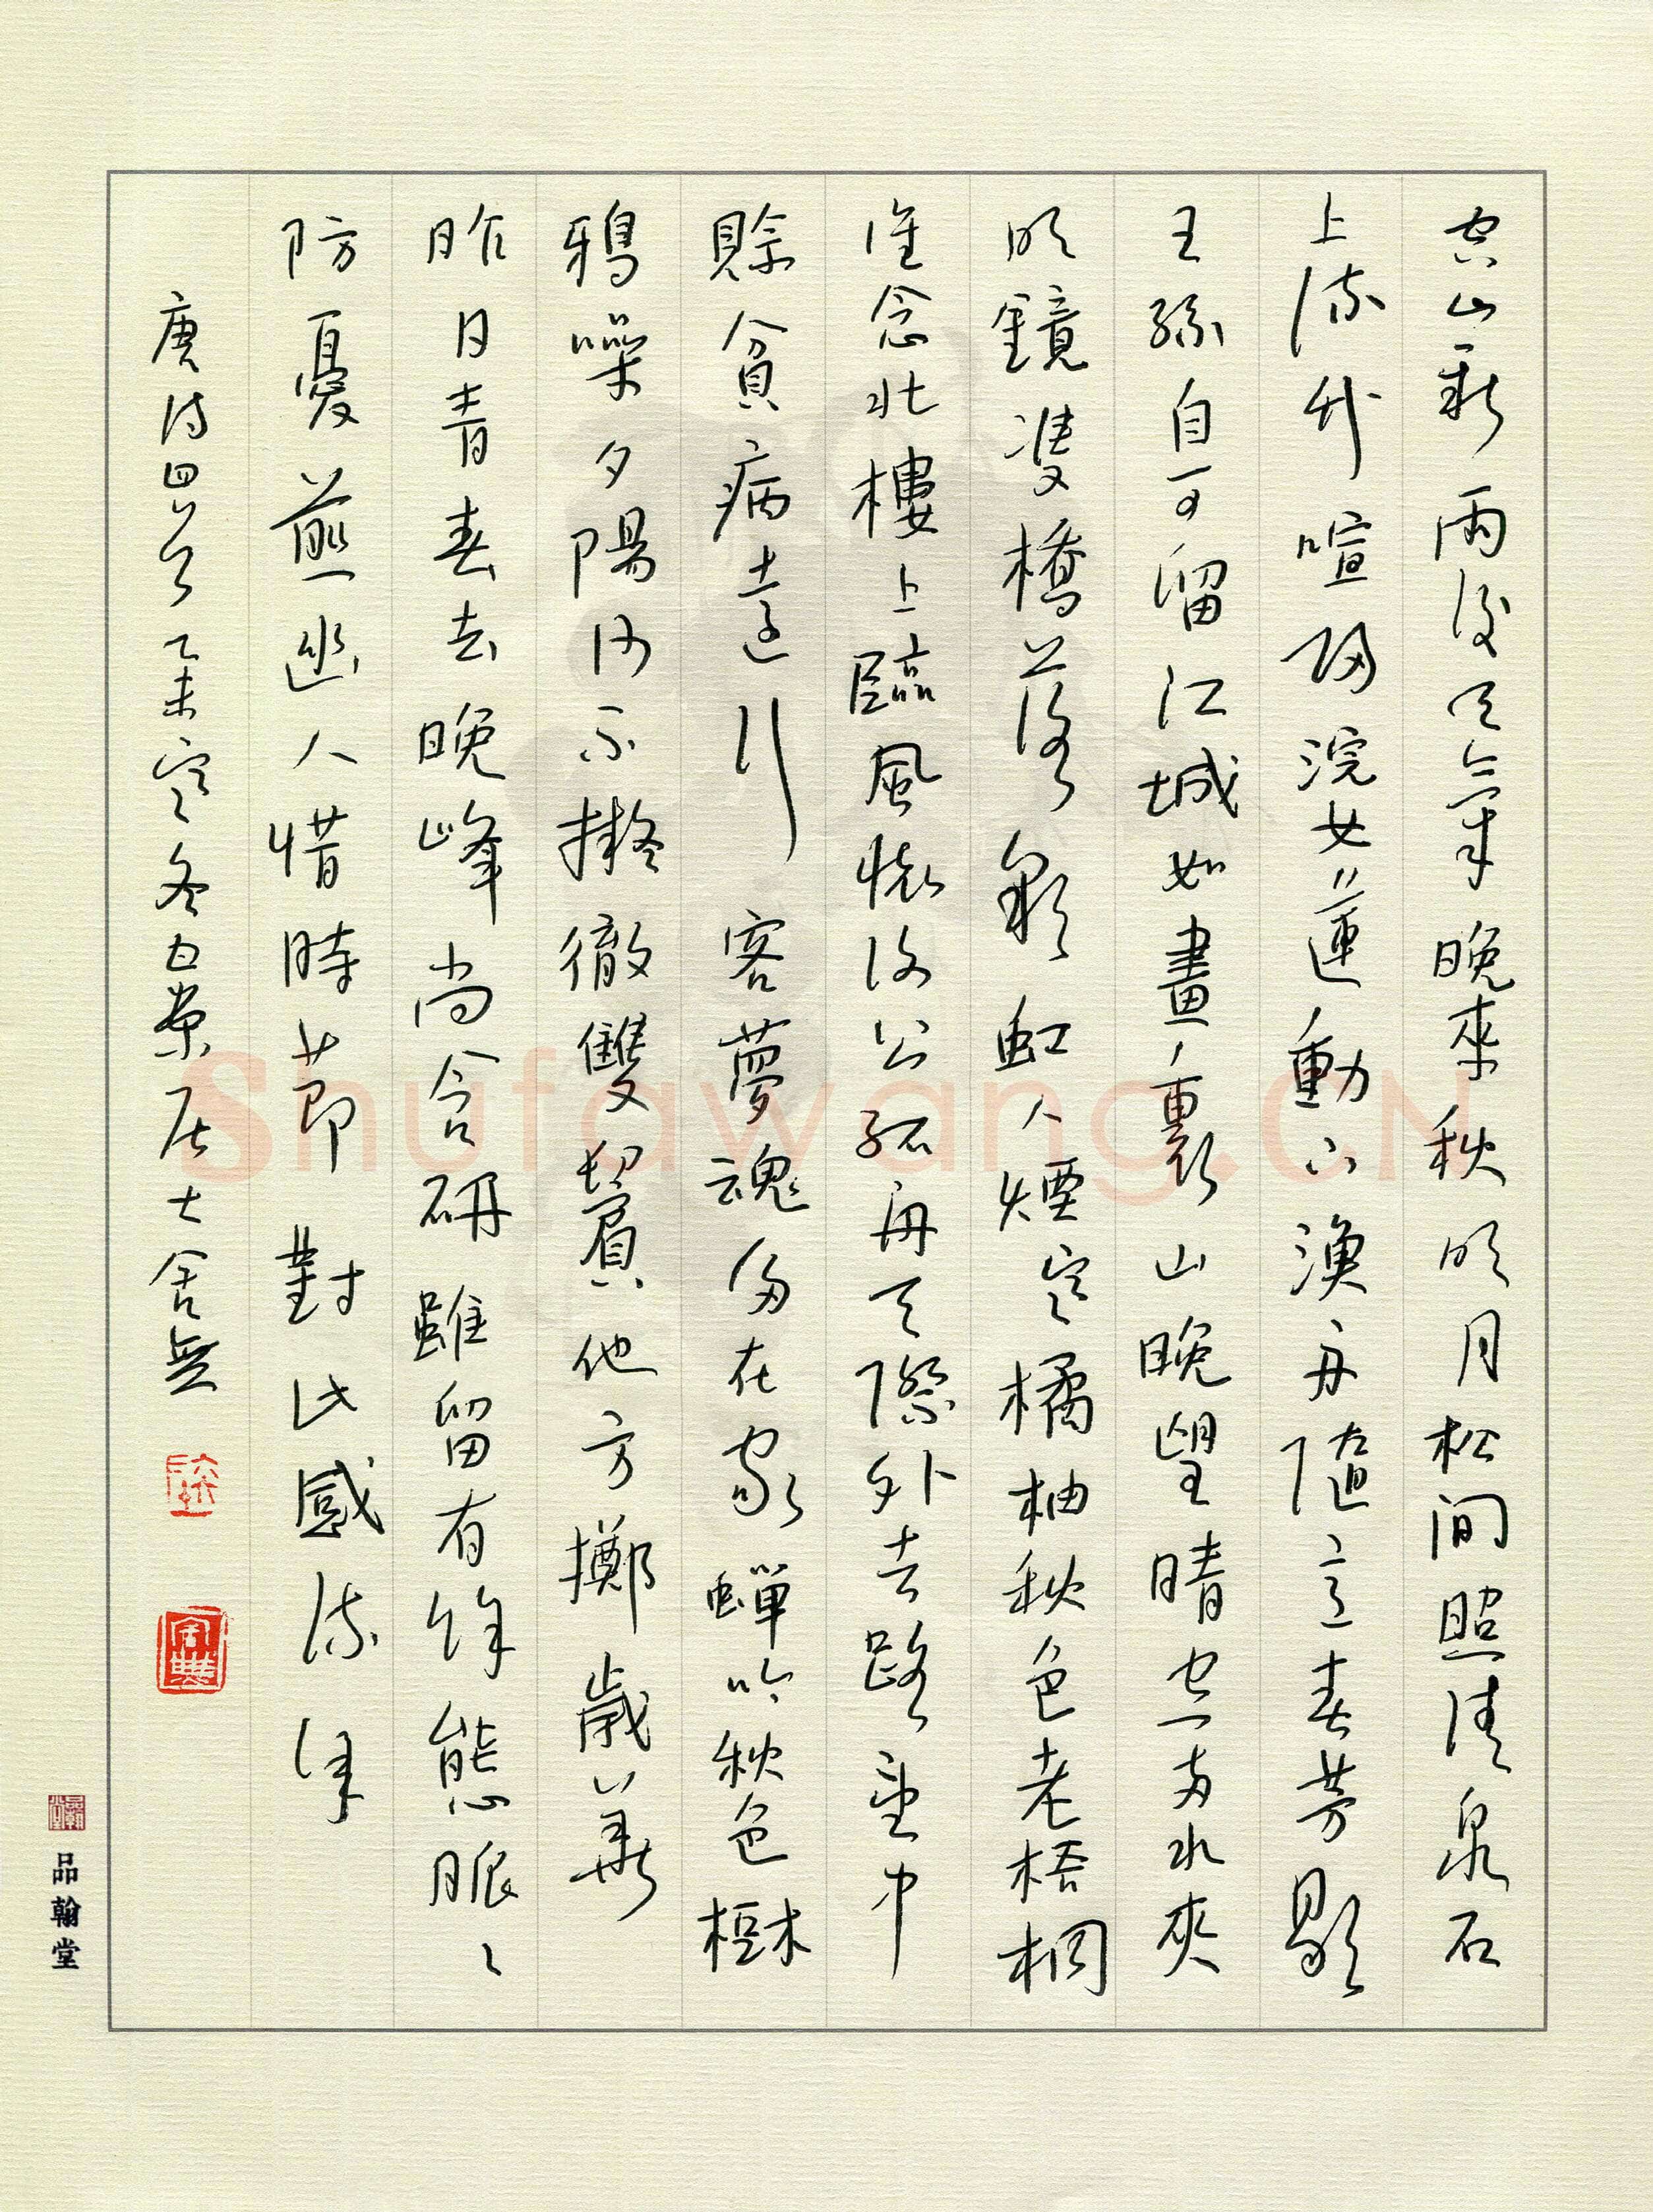 空山新雨後天氣晚來秋明月松间照清泉石
上流竹喧歸浣女蓮動下漁舟隨意春芳歇
王孫自可留江城如畫裏山晚望晴空兩水夾
明鏡雙橋落彩虹人煙寒橘柚秋色老梧桐
誰念北樓上臨風懷謝公孤舟天際外去路望中
賒貧病遠行客夢魂多在家蟬吟秋色樹
鴉噪夕陽沙不擬徹雙鬢他方擲歲華
昨日青春去晚峰尚含研雖留有餘態脈々
防憂煎幽人惜時節對此感流年
唐詩四首乙未寒冬居士
品翰堂
Shufawang.CN